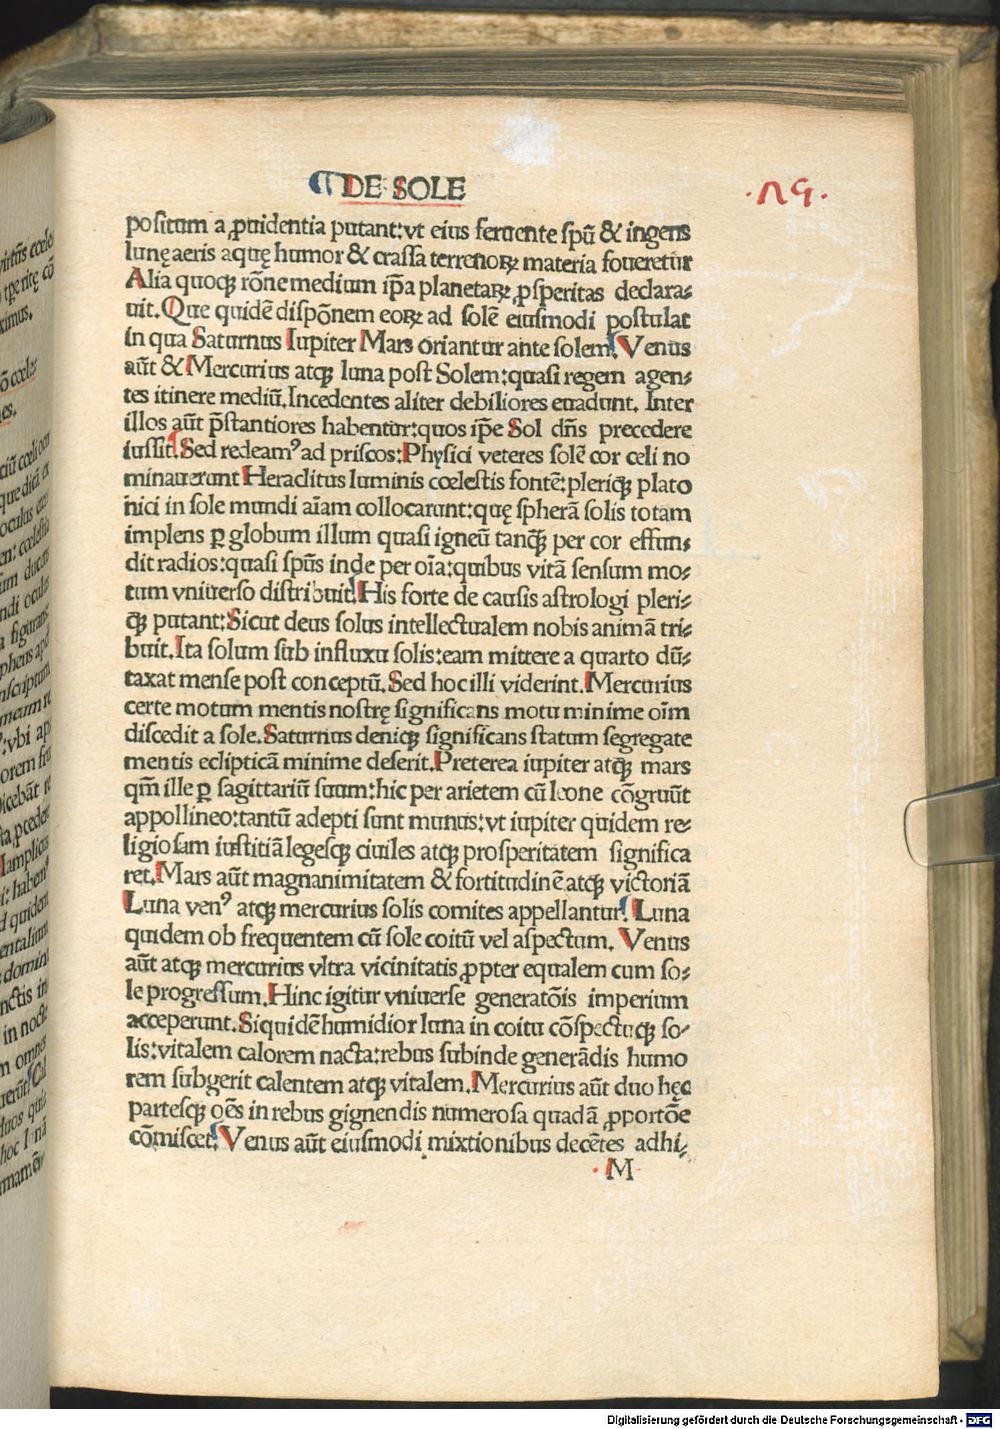 DE SOLE
·ꓥ9·
positum a ꝓuidentia putant:vt eius feruente spũ & ingens
lunę aeris aquę humor & crassa terrenoꝝ materia foueretur
Alia quoqꝫ rõne medium ip̃a planetaꝝ ꝓsperitas declara⸗
uit. Que quidẽ dispõnem eoꝝ ad solẽ eiusmodi postulat
in qua Saturnus Iupiter Mars oriantur ante solem. Venus
aũt & Mercurius atqꝫ luna post Solem:quasi regem agen⸗
tes itinere mediũ. Incedentes aliter debiliores euadunt. Inter
illos aũt p̃stantiores habentur:quos ip̃e Sol dñs precedere
iussit. Sed redeam⁹ ad priscos:Physici veteres solẽ cor celi no
minauerunt Heraclitus luminis cœlestis fontẽ:pleriqꝫ plato
nici in sole mundi aĩam collocarunt:quę spherã solis totam
implens ꝑ globum illum quasi igneũ tanqꝫ̃ per cor effun⸗
dit radios:quasi spũs inde per oĩa:quibus vitã sensum mo⸗
tum vniuerso distribuit. His forte de causis astrologi pleri⸗
qꝫ putant:Sicut deus solus intellectualem nobis animã tri⸗
buit. Ita solum sub influxu solis:eam mittere a quarto dũ⸗
taxat mense post conceptũ. Sed hoc illi viderint. Mercurius
certe motum mentis nostrę significans motu minime oĩm
discedit a sole. Saturnus deniqꝫ significans statum segregate
mentis eclipticã minime deserit. Preterea iupiter atqꝫ mars
qm̃ ille ꝑ sagittariũ suum:hic per arietem cũ leone cõgruũt
appollineo:tantũ adepti sunt munus:vt iupiter quidem re⸗
ligiosam iustitiã legesqꝫ ciuiles atqꝫ prosperitatem significa
ret. Mars aũt magnanimitatem & fortitudinẽ atqꝫ victoriã
Luna ven⁹ atqꝫ mercurius solis comites appellantur. Luna
quidem ob frequentem cũ sole coitũ vel aspectum. Venus
aũt atqꝫ mercurius vltra vicinitatis ꝓpter equalem cum so⸗
le progressum. Hinc igitur vniuerse generatõis imperium
acceperunt. Siquidẽ humidior luna in coitu cõspectuqꝫ so⸗
lis:vitalem calorem nacta:rebus subinde generãdis humo
rem subgerit calentem atqꝫ vitalem. Mercurius aũt duo hęc
partesqꝫ oẽs in rebus gignendis numerosa quadã ꝓportõe
cõmiscet. Venus aũt eiusmodi mixtionibus decẽtes adhi⸗
M
Digitalisierung gefördert durch die Deutsche Forschungsgemeinschaft - DFG